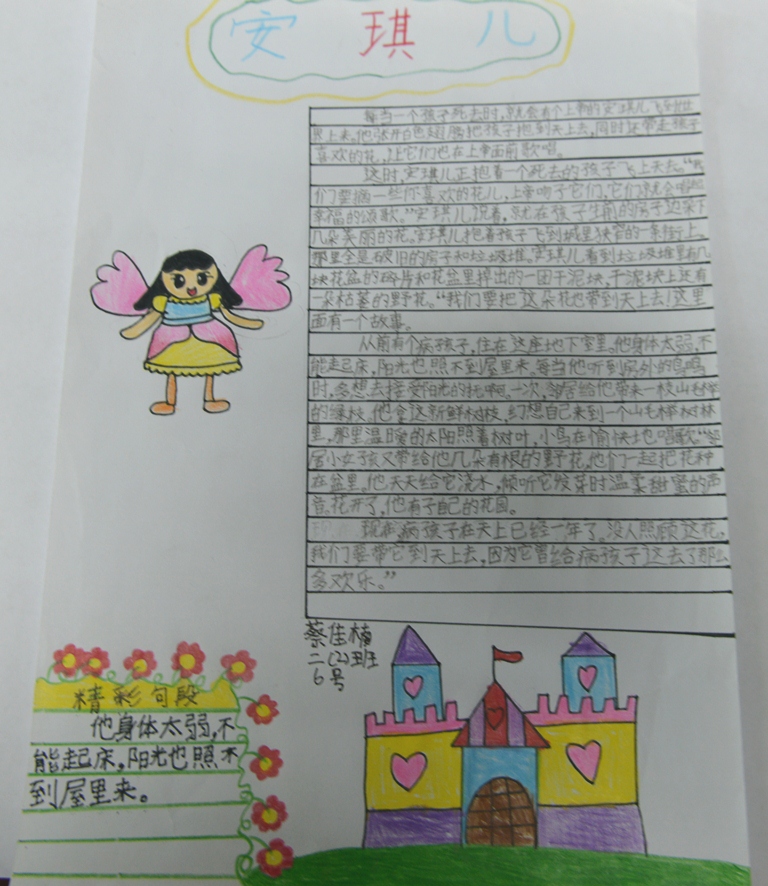 安琪儿
每当一个孩子死去时，就会有个上帝的安琪儿飞到世
界上来。他张开白色翅膀把孩子抱到天上去，同时还带走孩子
喜欢的花，让它们也在上帝面前歌唱。
这时，安琪儿正抱着一个死去的孩子飞上天去。“我
们要摘一些你喜欢的花儿，上帝吻了它们，它们就会唱起
幸福的颂歌。”安琪儿说着，就在孩子生前的房子边采下
几朵美丽的花。安琪儿抱着孩子飞到城里狭窄的一条街上。
那里全是破旧的房子和垃圾堆。安琪儿看到垃圾堆里有几
块花盆的碎片和花盆里掉出的一团干泥块，干泥块上还有
一朵枯萎的野花。“我们要把这朵花也带到天上去！这里
面有一个故事。
从前有个病孩子，住在这座地下室里。他身体太弱，不
能起床，阳光也照不到屋里来。每当他听到房外的鸟鸣
时，多想去接受阳光的抚啊。一次，邻居给他带来一枝山毛榉
的绿枝。他拿这新鲜树枝，幻想自己来到一个山毛榉树林
里，那里温暖的太阳照着树叶，小鸟在愉快地唱歌。“邻
居小女孩又带给他几朵有根的野花，他们一起把花种
在盆里。他天天给它浇水，倾听它发芽时温柔甜蜜的声
音。花开了，他有了自己的花园。
现在病孩子在天上已经一年了。没人照顾这花，
我们要带它到天上去，因为它曾给病孩子送去了那么
多欢乐。”
蔡佳楠
二(2)班
6号
精彩句段
他身体太弱，不
能起床，阳光也照不
到屋里来。